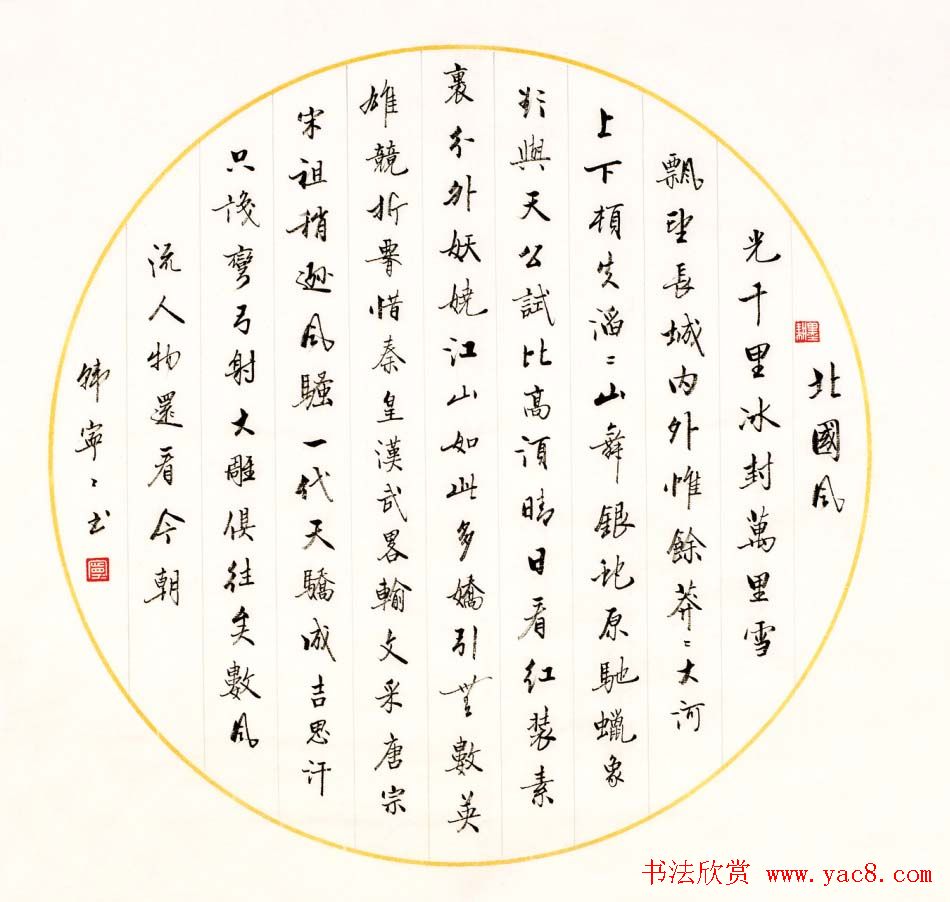 北國風
光千里冰封萬里雪
飄望長城内外惟餘莽々大河
上下頓失滔々山舞銀蛇原馳蠟象
欲與天公試比高須晴日看红裝素
裹分外妖嬈江山如此多嬌引無數英
雄競折腰惜秦皇漢武畧輸文采唐宗
宋祖稍遜風騷一代天驕成吉思汗
只識彎弓射大雕俱往矣數風
流人物還看今朝
韩寧々书
书法欣赏 www.yac8.com